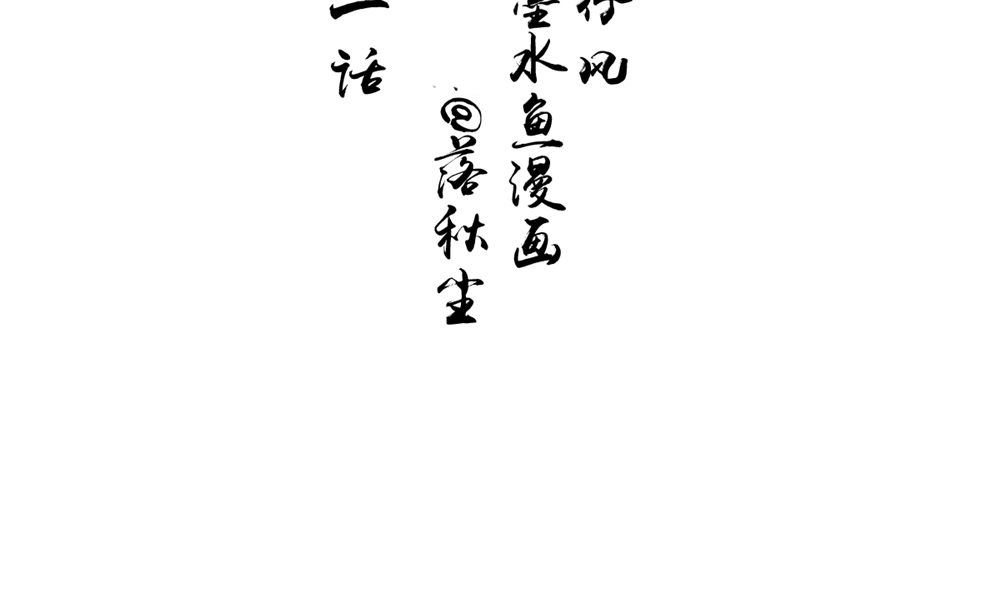 风
水鱼漫画
@落秋尘
一话